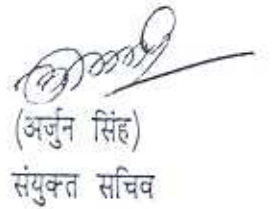 (अर्जुन सिंह)
संयुक्त सचिव